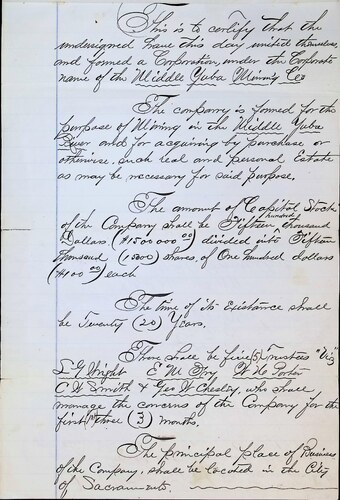 This is to certify that the
undersigned have this day united themselves
and formed a Corporation, under the Corporate
name of the Middle Yuba Mining Co
The company is formed for the
purpose of Mining in the Middle Yuba
River and for acquiring by purchase or
otherwise such real and personal Estate
as may be necessary for said purpose.
The amount of Capital Stock
of the Company shall be Fifteen hundred thousand
Dollars ($1500000 00) divided into Fifteen
thousand (15000) shares, of One hundred dollars
($100 00) each
The time of its Existance shall
be Twenty (20) Years.
There shall be five (5) Trustees "Viz"
S G Wright E M Fry W H Porter
C H Smith & Geo W Chesley, who shall
manage the concerns of the Company for the
first three (3) months.
The principal place of Business
of the Company, shall be located in the City
of Sacramento.